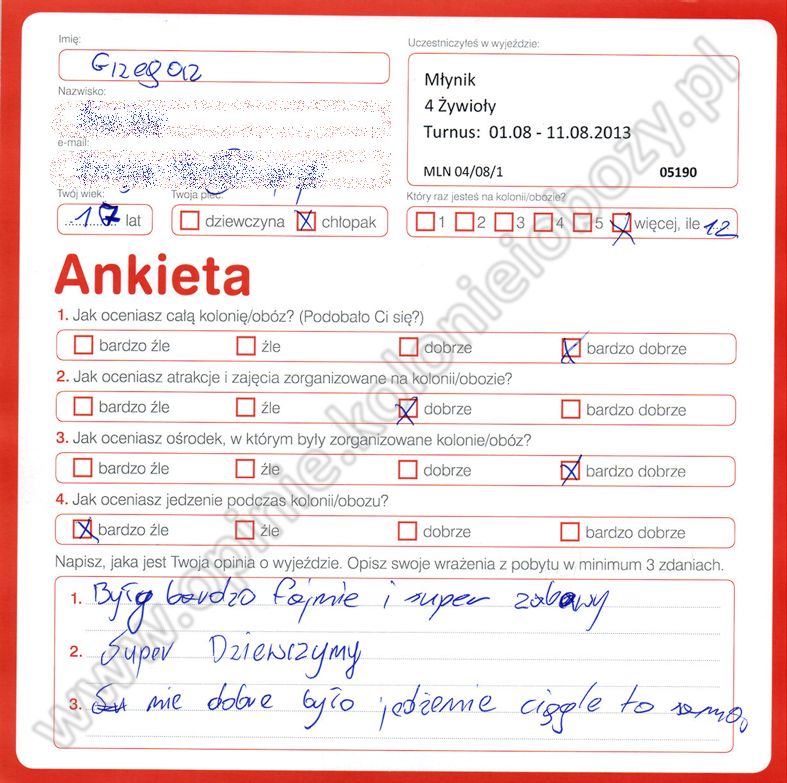 Imię:
Grzegorz
Nazwisko:
e-mail:
Twój wiek:
17 lat
Twoja płeć:
dziewczyna chłopak
Uczestniczyłeś w wyjeździe:
Młynik
4 Żywioły
Turnus: 01.08 - 11.08.2013
MLN 04/08/1 05190
Który raz jesteś na kolonii/obozie?
1 2 3 4 5 więcej, ile 12
Ankieta
1. Jak oceniasz całą kolonię/obóz? (Podobało Ci się?)
bardzo źle źle dobrze bardzo dobrze
2. Jak oceniasz atrakcje i zajęcia zorganizowane na kolonii/obozie?
bardzo źle źle dobrze bardzo dobrze
3. Jak oceniasz ośrodek, w którym były zorganizowane kolonie/obóz?
bardzo źle źle dobrze bardzo dobrze
4. Jak oceniasz jedzenie podczas kolonii/obozu?
bardzo źle źle dobrze bardzo dobrze
Napisz, jaka jest Twoja opinia o wyjeździe. Opisz swoje wrażenia z pobytu w minimum 3 zdaniach.
1. Było bardzo fajnie i super zabawy
2. Super Dziewczyny
3. nie dobre było jedzenie ciągle to samo.
www.opinie.kolonieiobozy.pl